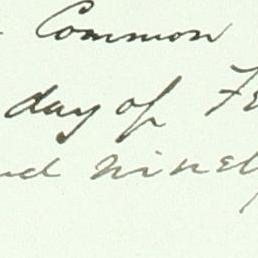 Common
day of Fe
nd ninety